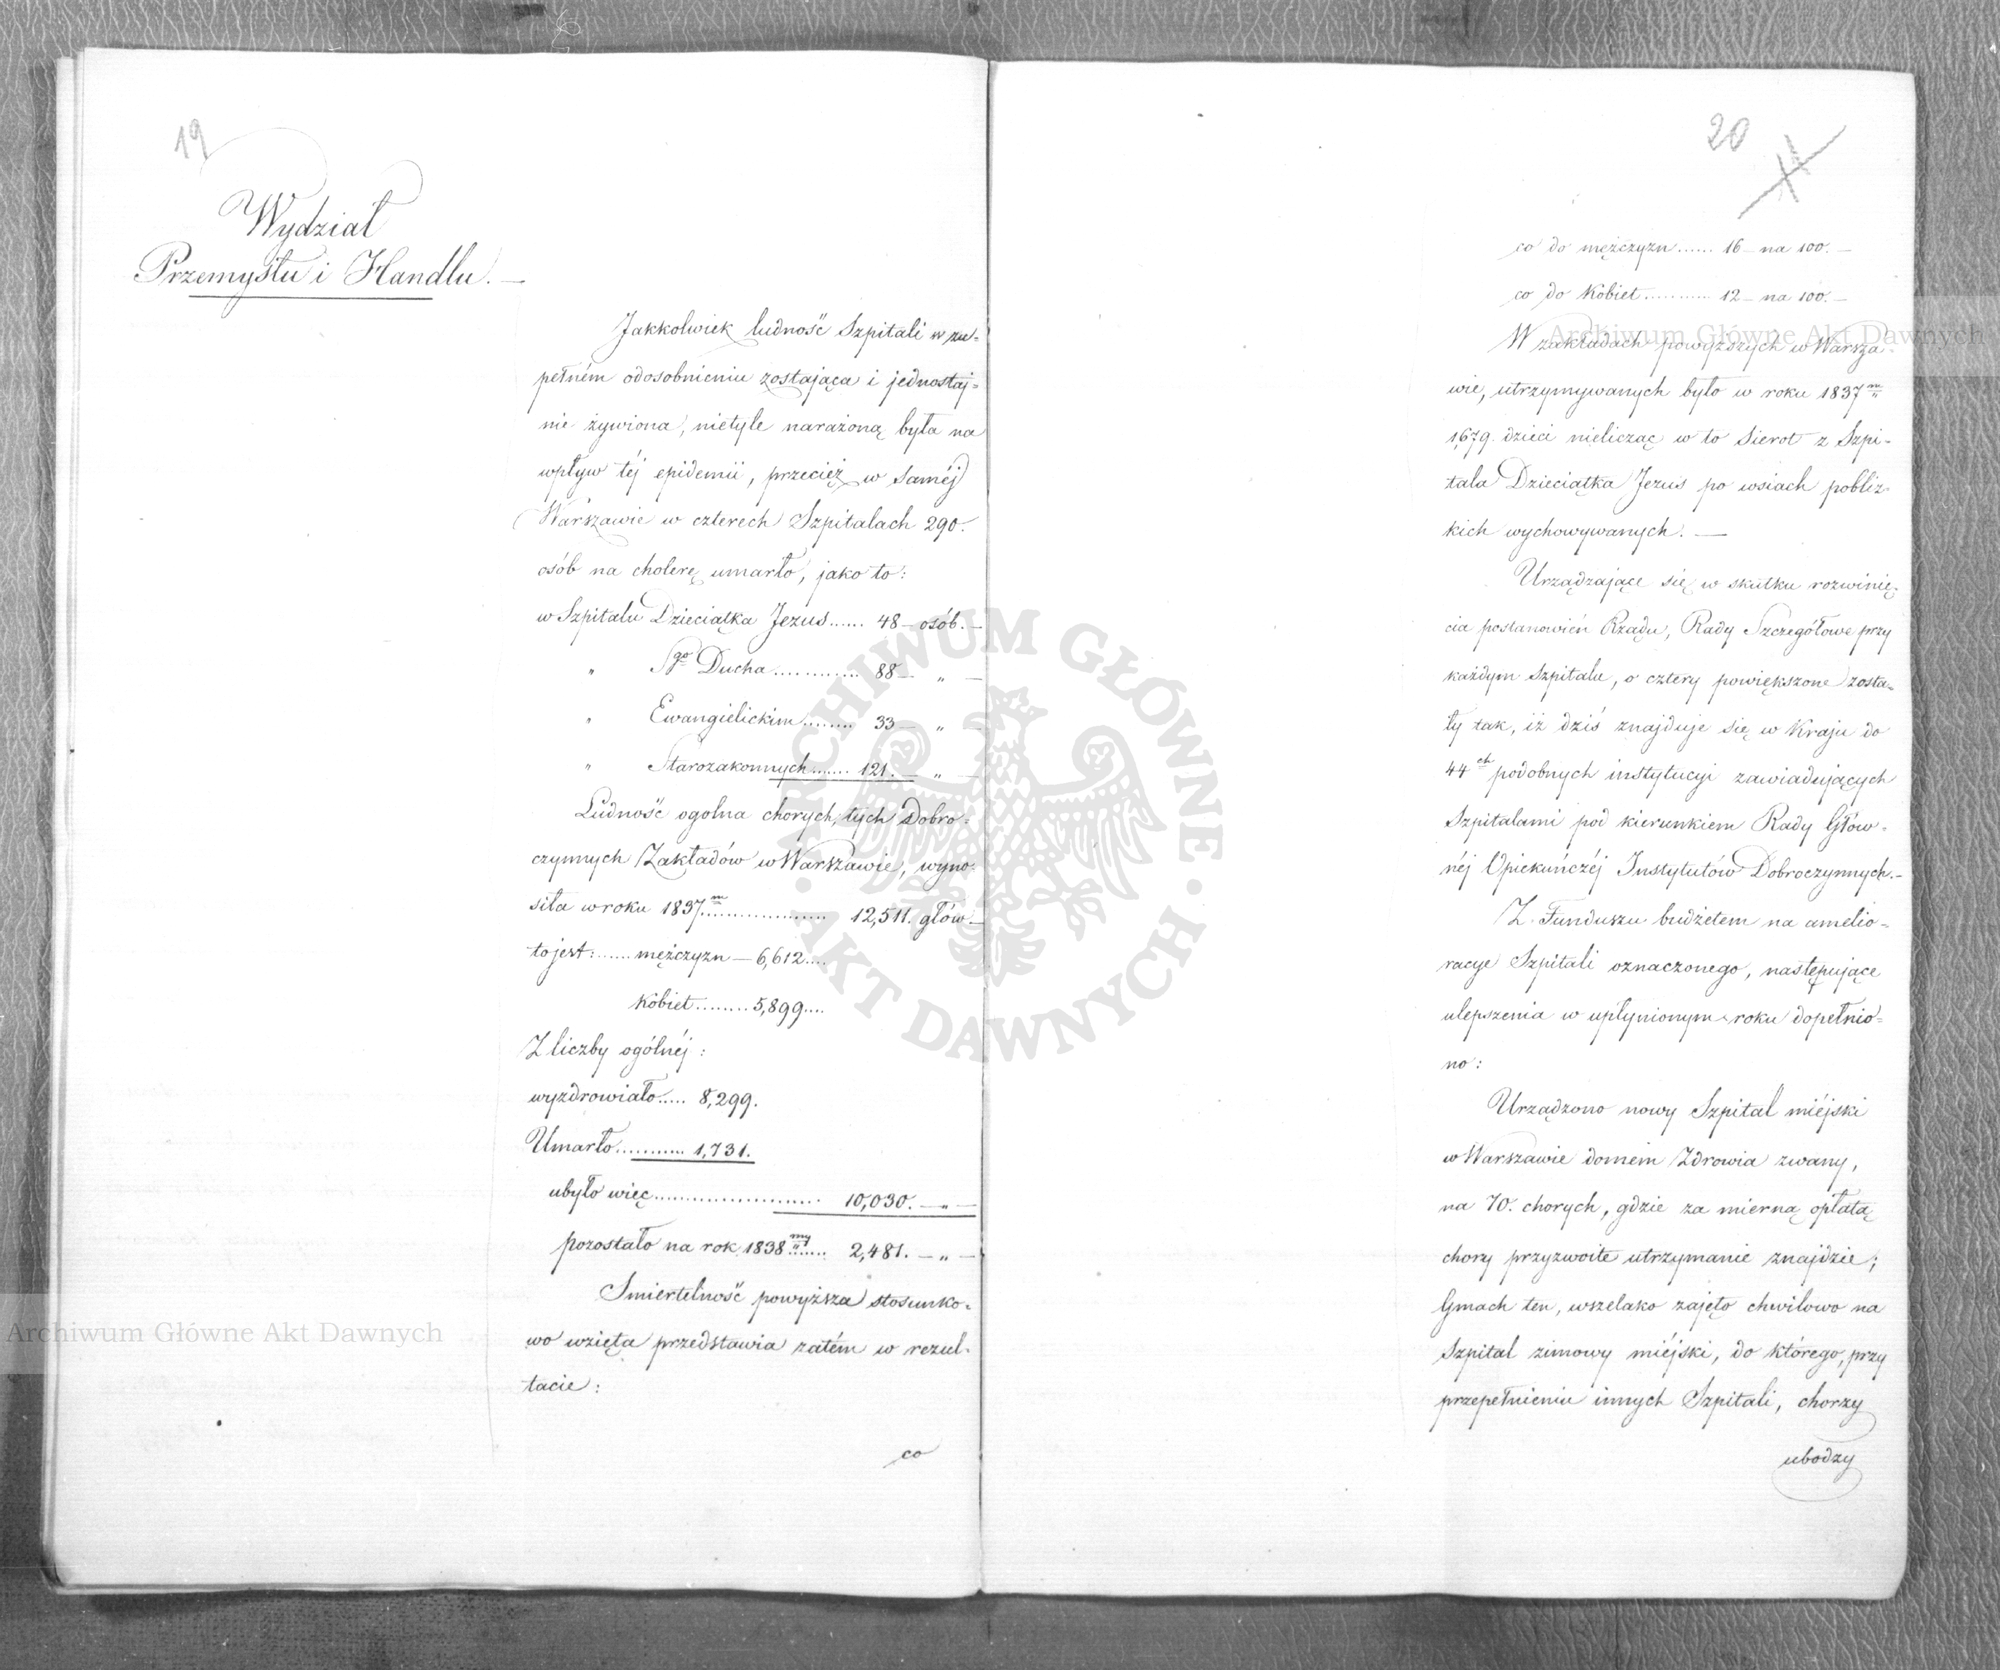 19
Wydział
Przemysłu i Handlu. —
Jakkolwiek ludność Szpitali w zu-
pełném odosobnieniu zostająca i jednostaj-
nie żywiona, nietyle narażoną była na
wpływ téj epidemii, przecież w saméj
Warszawie w czterech Szpitalach 290.
osób na cholerę umarło, jako to:
w Szpitalu Dzieciątka Jezus...... 48 — osób. —
" Sgo Ducha ............ 88 — " —
" Ewangielickim ........ 33 — " —
" Starozakonnych ....... 121. — " —
Ludność ogolna chorych, tych Dobro-
czynnych Zakładów w Warszawie, wyno-
siła w roku 1837m .................... 12,511. głów —
to jest: ...... mężczyzn — 6,612 ....
kobiet ........ 5,899 ....
Z liczby ogólnéj :
wyzdrowiało ..... 8,299.
Umarło ........... 1,731.
ubyło więc ........................ 10,030. — " —
pozostało na rok 1838my ...... 2,481. — " —
Smiertelność powyższa stosunko-
wo wzięta przedstawia zatém w rezul-
tacie :
co
20
co do mężczyzn ...... 16 — na 100. —
co do Kobiet ........... 12 — na 100. —
W zakładach powyższych w Warsza-
wie, utrzymywanych było w roku 1837m
1,679. dzieci nielicząc w to Sierot z Szpi-
tala Dzieciątka Jezus po wsiach pobliz-
kich wychowywanych. —
Urządzające się w skutku rozwinię-
cia postanowień Rządu, Rady Szczegółowe przy
każdym Szpitalu, o cztery powiększone zosta-
ły tak, iż dziś znajduje się w Kraju do
44ch podobnych instytucyi zawiadujących
Szpitalami pod kierunkiem Rady Głów-
néj Opiekuńczéj Instytutów Dobroczynnych. —
Z Funduszu budżetem na amelio-
racye Szpitali oznaczonego, następujące
ulepszenia w upłynionym roku dopełnio-
no :
Urządzono nowy Szpital miéjski
w Warszawie domem Zdrowia zwany,
na 70. chorych, gdzie za mierną opłatą
chory przyzwoite utrzymanie znajdzie;
Gmach ten, wszelako zajęto chwilowo na
Szpital zimowy miéjski, do którego, przy
przepełnieniu innych Szpitali, chorzy
ubodzy
Archiwum Główne Akt Dawnych
Archiwum Główne Akt Dawnych
ARCHIWUM GŁÓWNE
AKT DAWNYCH